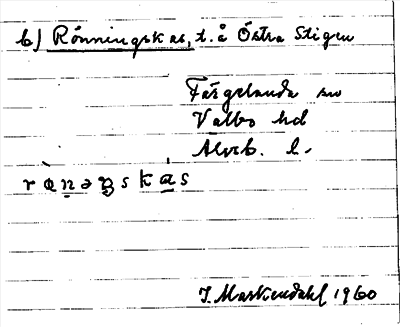 b) Rönningskas, t. å Östra Stigen
Färgelanda sn
Valbo hd
Älvsb. l.
r ö̀ n ə ŋ s k a s
J. Markendahl 1960